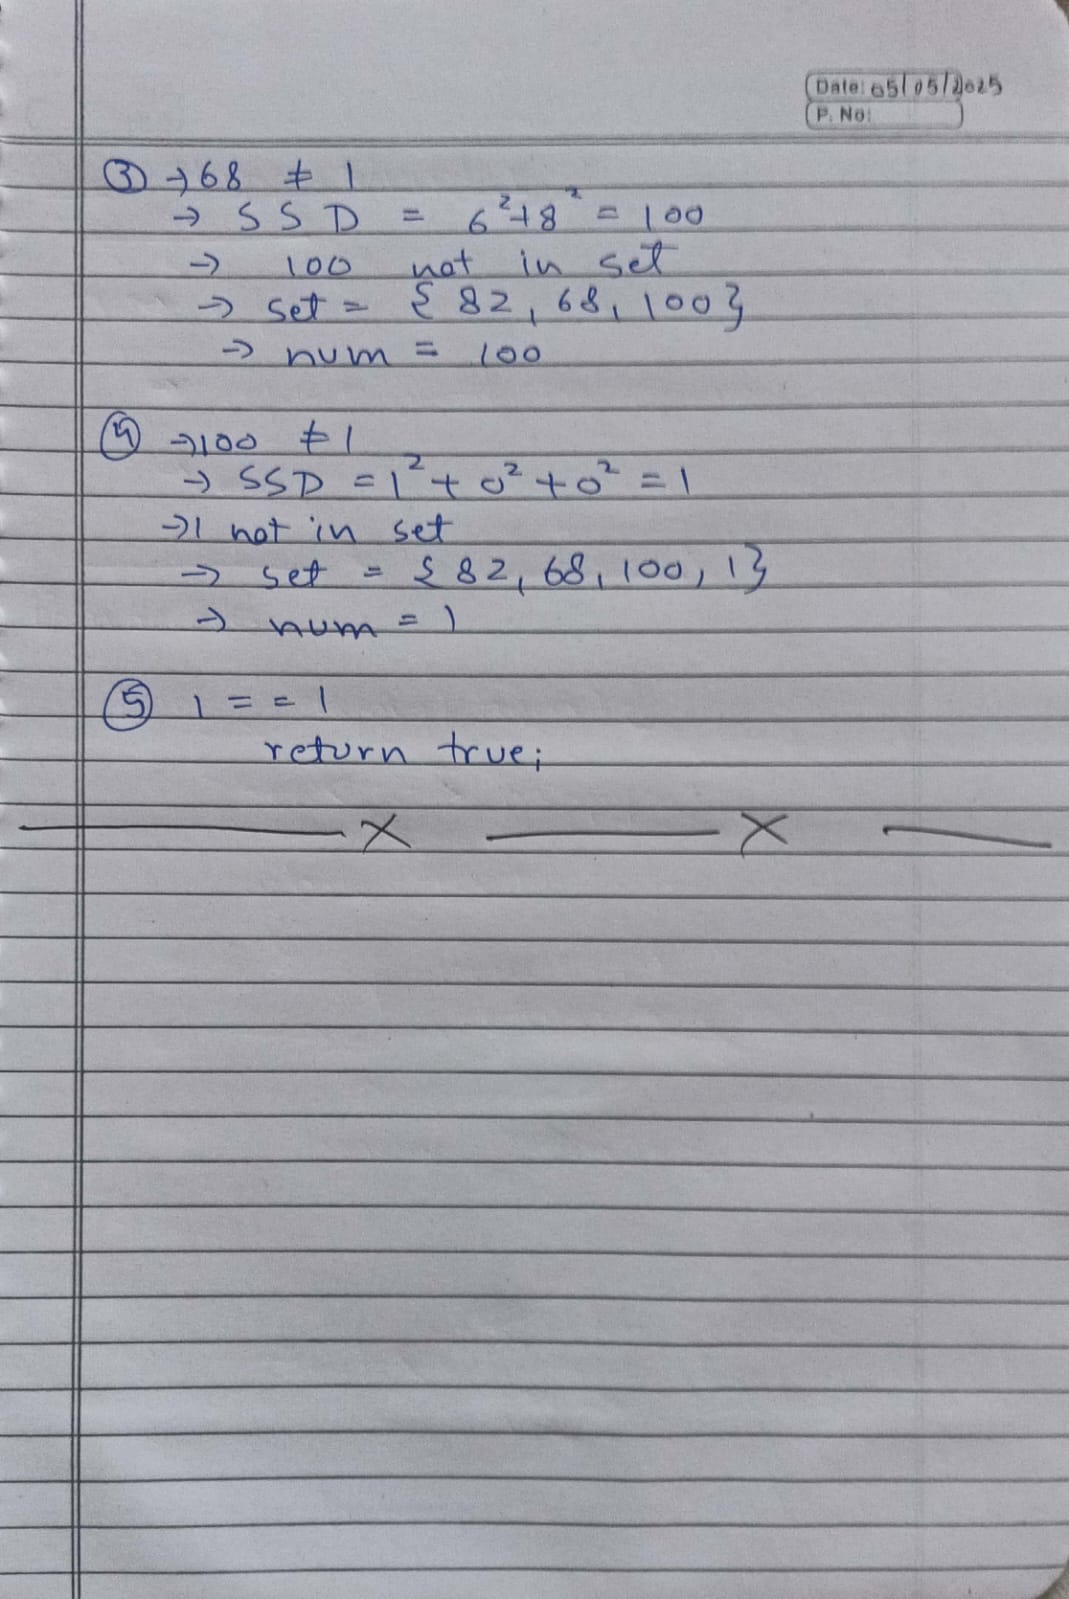 Date: 05/05/2025
P. No:
③ → 68 ≠ 1
→ SSD = 6² + 8² = 100
→ 100 not in set
→ set = {82, 68, 100}
→ num = 100
④ → 100 ≠ 1
→ SSD = 1² + 0² + 0² = 1
→ 1 not in set
→ set = {82, 68, 100, 1}
→ num = 1
⑤ 1 == 1
return true;